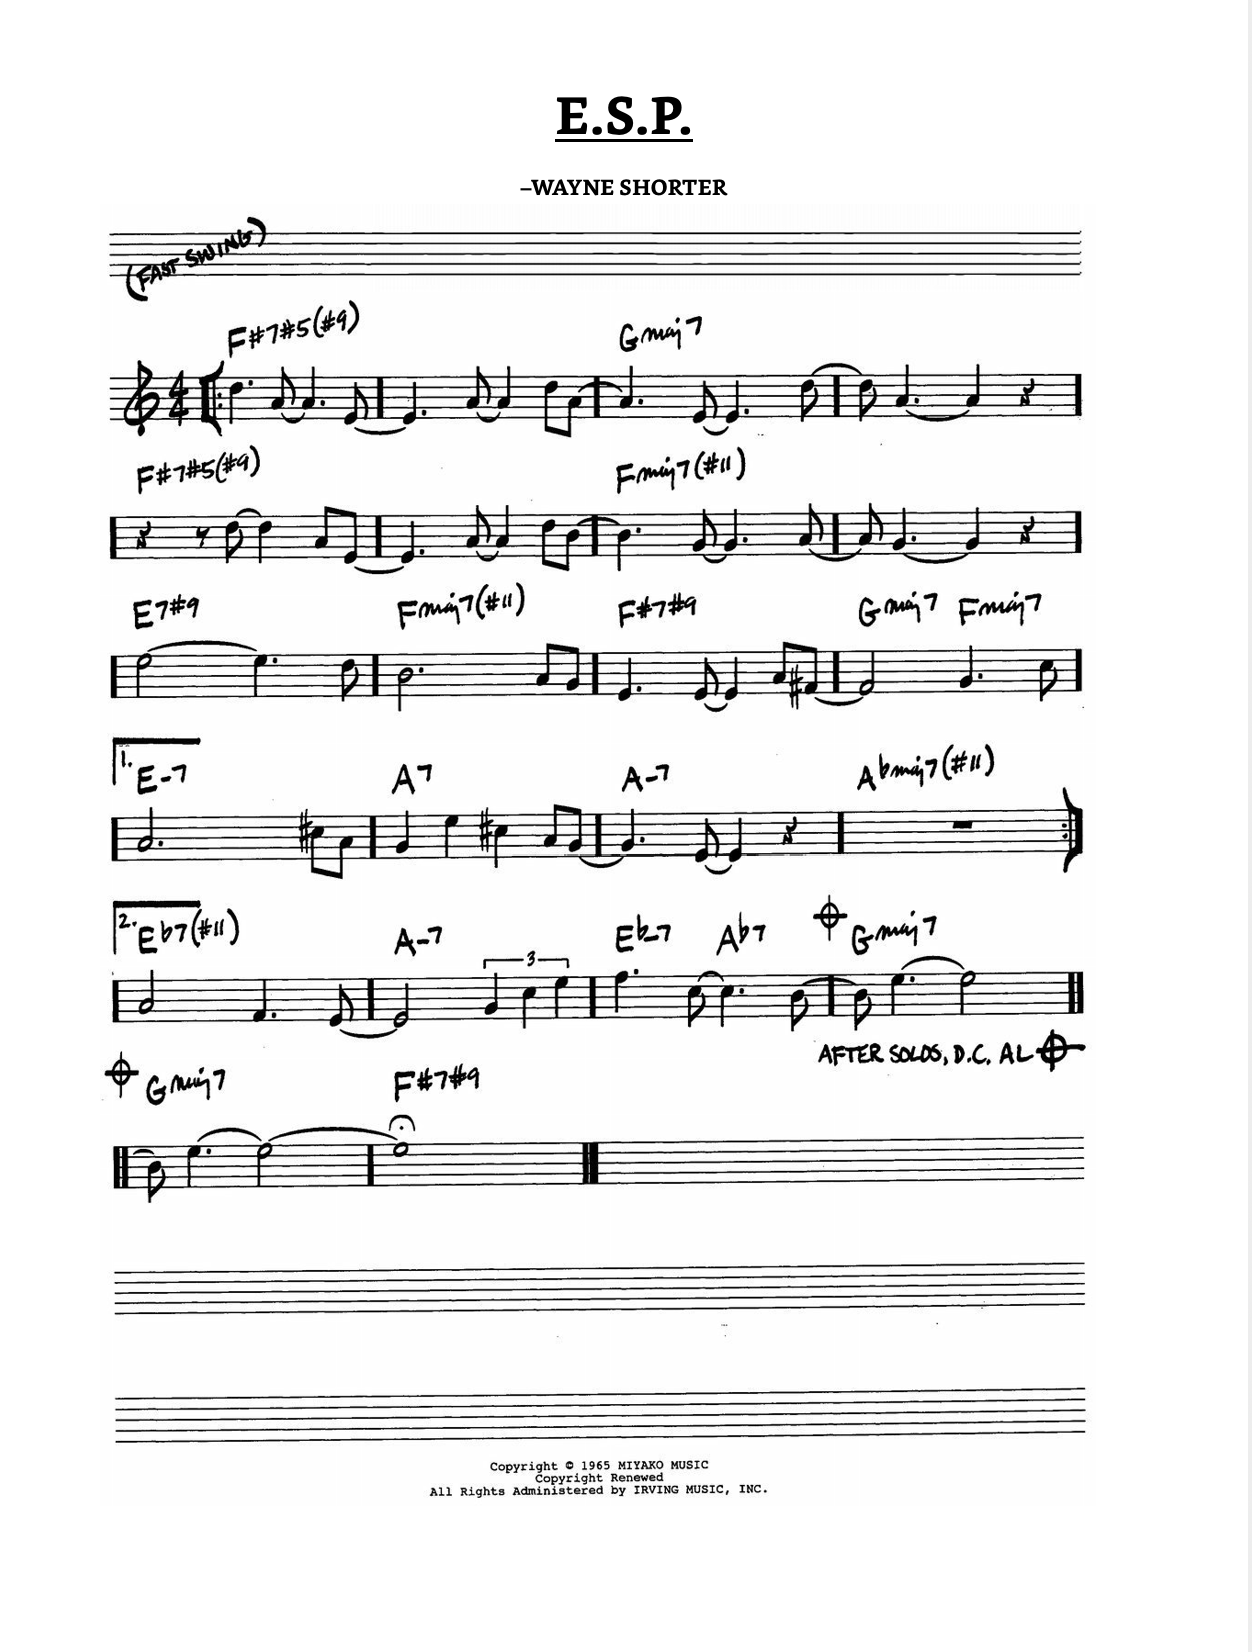 E.S.P.
–WAYNE SHORTER
(FAST SWING)
F#7#5(#9) Gmaj7
4/4
F#7#5(#9) Fmaj7(#11)
E7#9 Fmaj7(#11) F#7#9 Gmaj7 Fmaj7
1. E-7 A7 A-7 Abmaj7(#11)
2. Eb7(#11) A-7 Eb-7 Ab7 Gmaj7
3
AFTER SOLOS, D.C. AL
Gmaj7 F#7#9
Copyright © 1965 MIYAKO MUSIC
Copyright Renewed
All Rights Administered by IRVING MUSIC, INC.